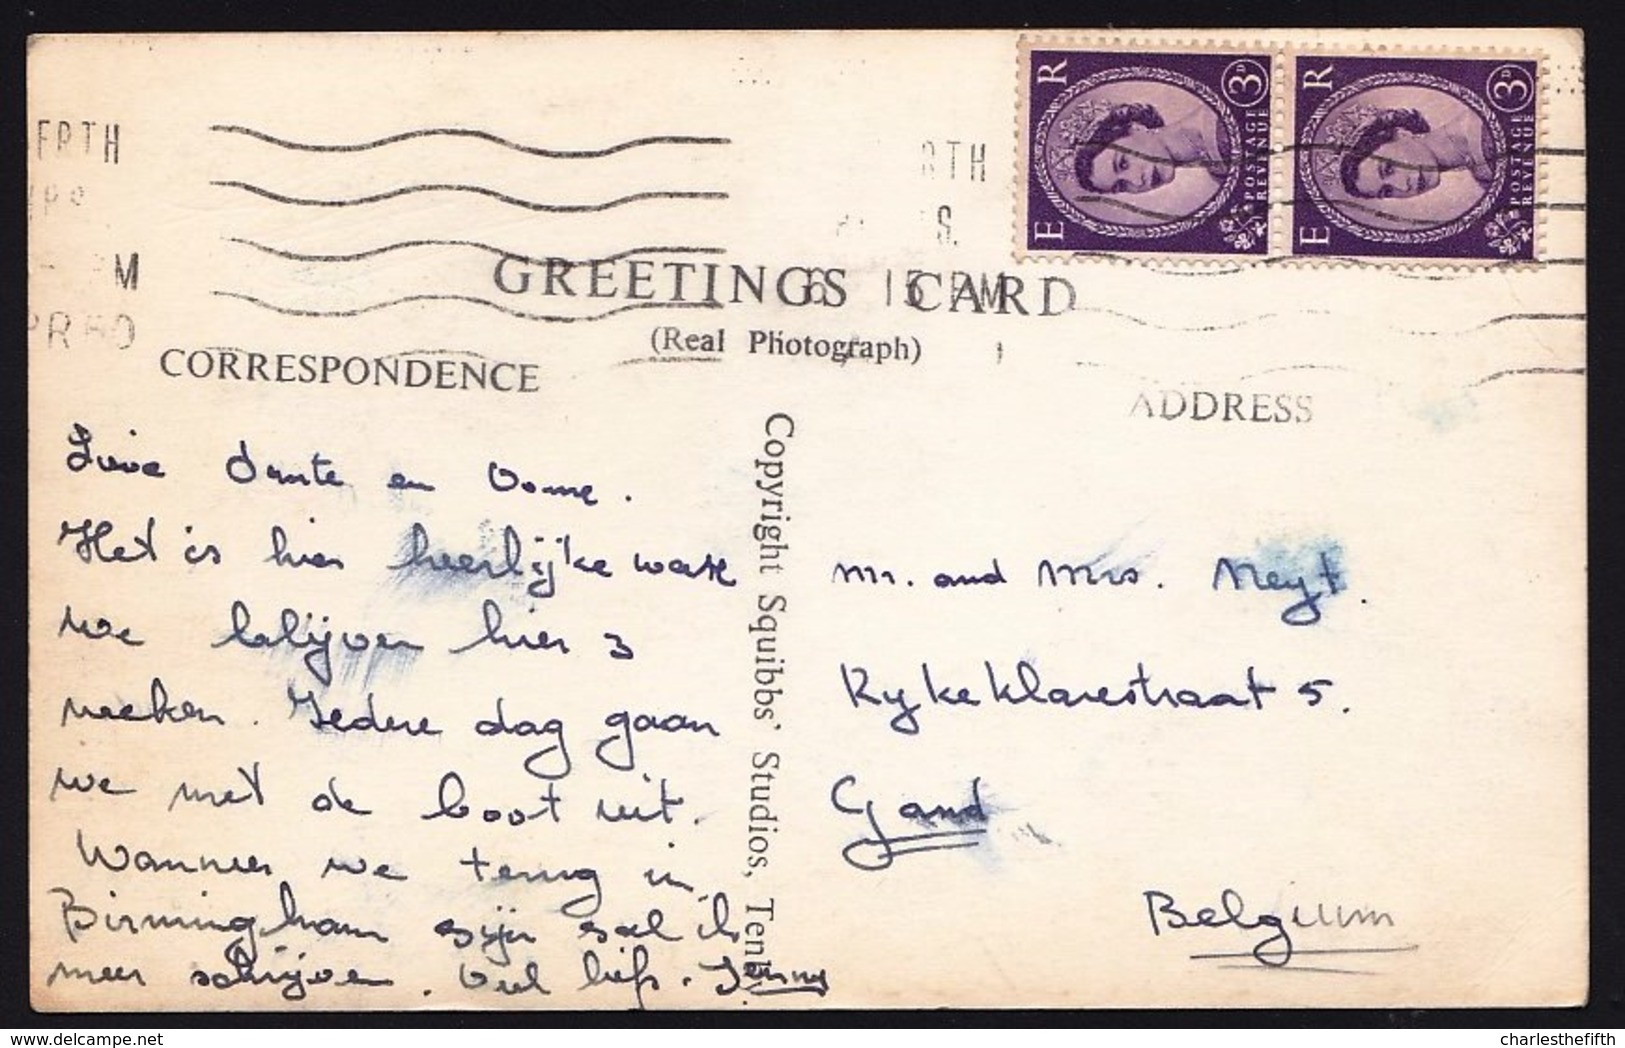 GREETINGS CARD
(Real Photograph)
CORRESPONDENCE
ADDRESS
Copyright Squibbs' Studios, Tenb
E R
3D
POSTAGE
REVENUE
E R
3D
POSTAGE
REVENUE
6 15 PM
Lieve Tante en Nonc.
Het is hier heerlijke
we blijven hier 3
weken. Iedere dag gaan
we met de boot uit.
Wanneer we terug in
Birmingham zijn zal ik
meer schrijven. Veel liefs. Jenny
Mr. and Mrs. Neyt.
Rykeklarestraat 5.
Gand
Belgium
charlesthefifth